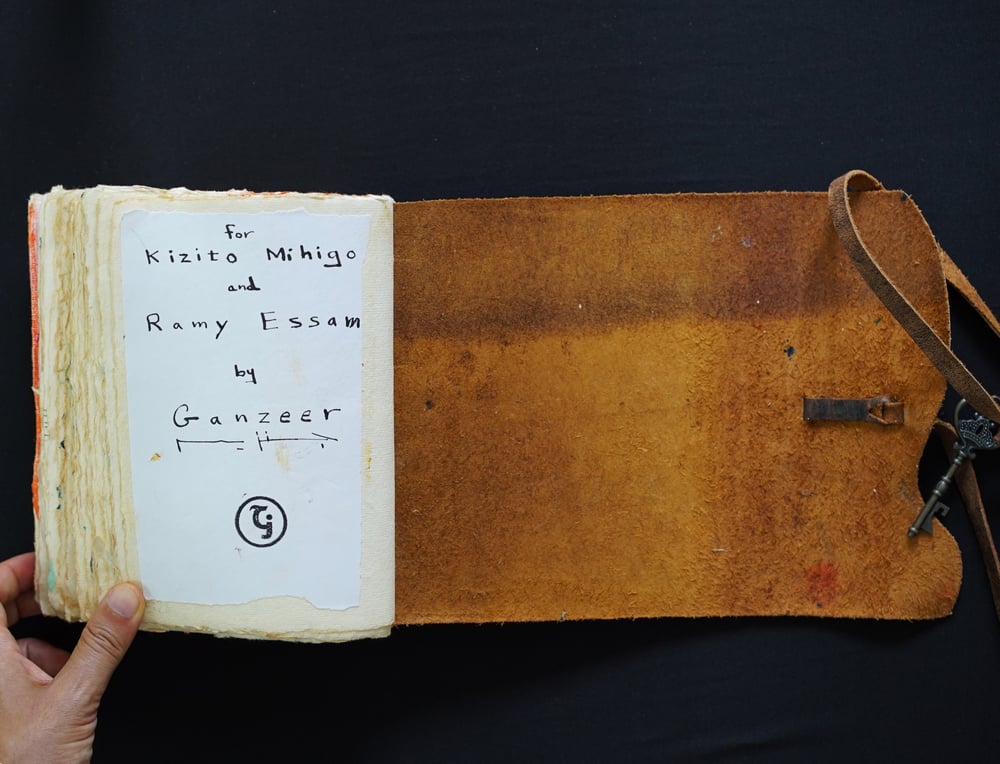 for
Kizito Mihigo
and
Ramy Essam
by
Ganzeer